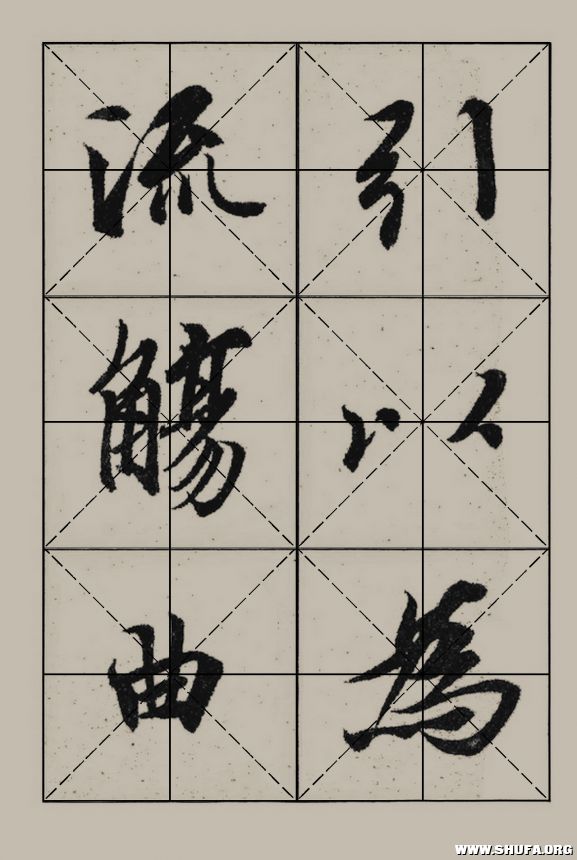 引以為
流觴曲
WWW.SHUFA.ORG